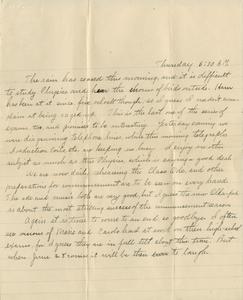 Thursday 6:30 A.M.
The rain has ceased this morning, and it is difficult
to study Physics and hear the chorus of birds outside. Ham
has been at it since five about though, so I guess I mustn't com-
plain at being caged up. This is the last one of the series of
exams, too, and promises to be interesting. Yesterday evening we
were diagramming telephone lines, while this morning telegraphs
& induction coils etc. are keeping us busy. I enjoy no other
subject as much as this Physics, which is saying a good deal.
We are now daily rehearsing the Class Ode, and other
preparations for commencement are to be seen on every hand.
The ode and music both are very good, but I guess the new
is about the most striking success of the commencement season.
Again it is time to come to an end so goodbye. I often
see visions of Marie and Carole hard at work on their high school
exams, for I guess they are in full tilt about this time. But
when June 28 comes it will be their turn to laugh.